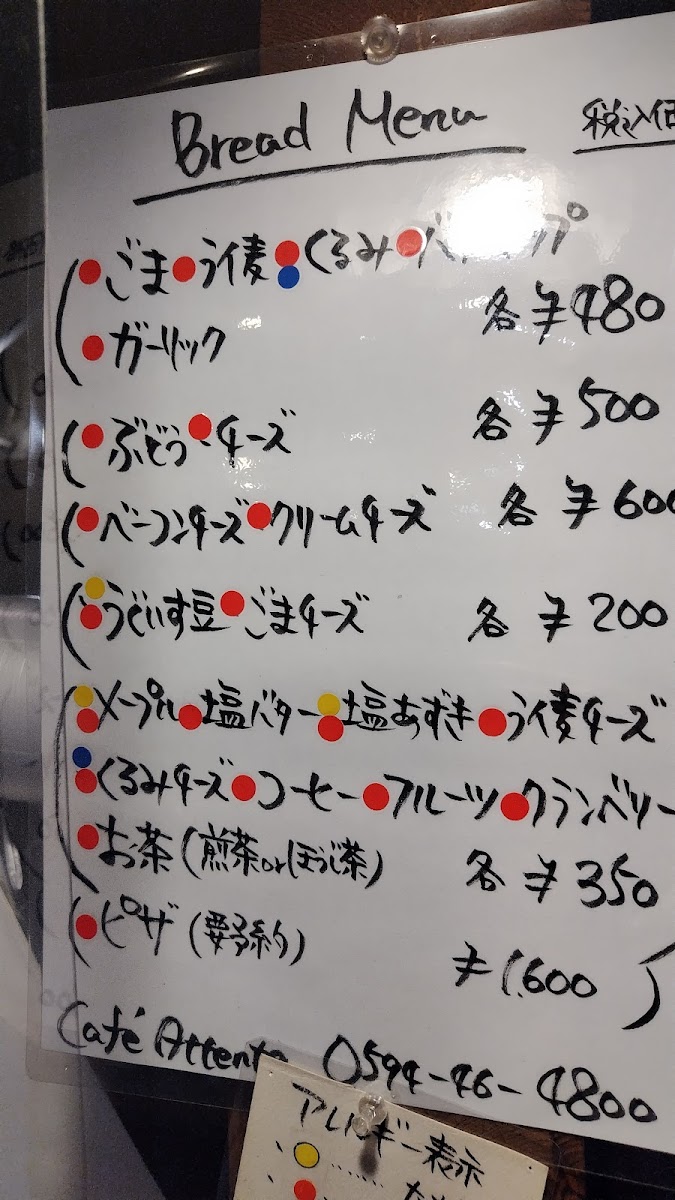 Bread Menu
税込価
ごま ライ麦 くるみ
ガーリック 各 ¥480
ぶどう チーズ 各 ¥500
ベーコンチーズ クリームチーズ 各 ¥600
うぐいす豆 ごまチーズ 各 ¥200
メープル 塩バター 塩あずき ライ麦チーズ
くるみチーズ コーヒー フルーツ クランベリー
お茶(煎茶orほうじ茶) 各 ¥350
ピザ(要予約) ¥1,600
Café Attente 0594-46-4800
アレルギー表示